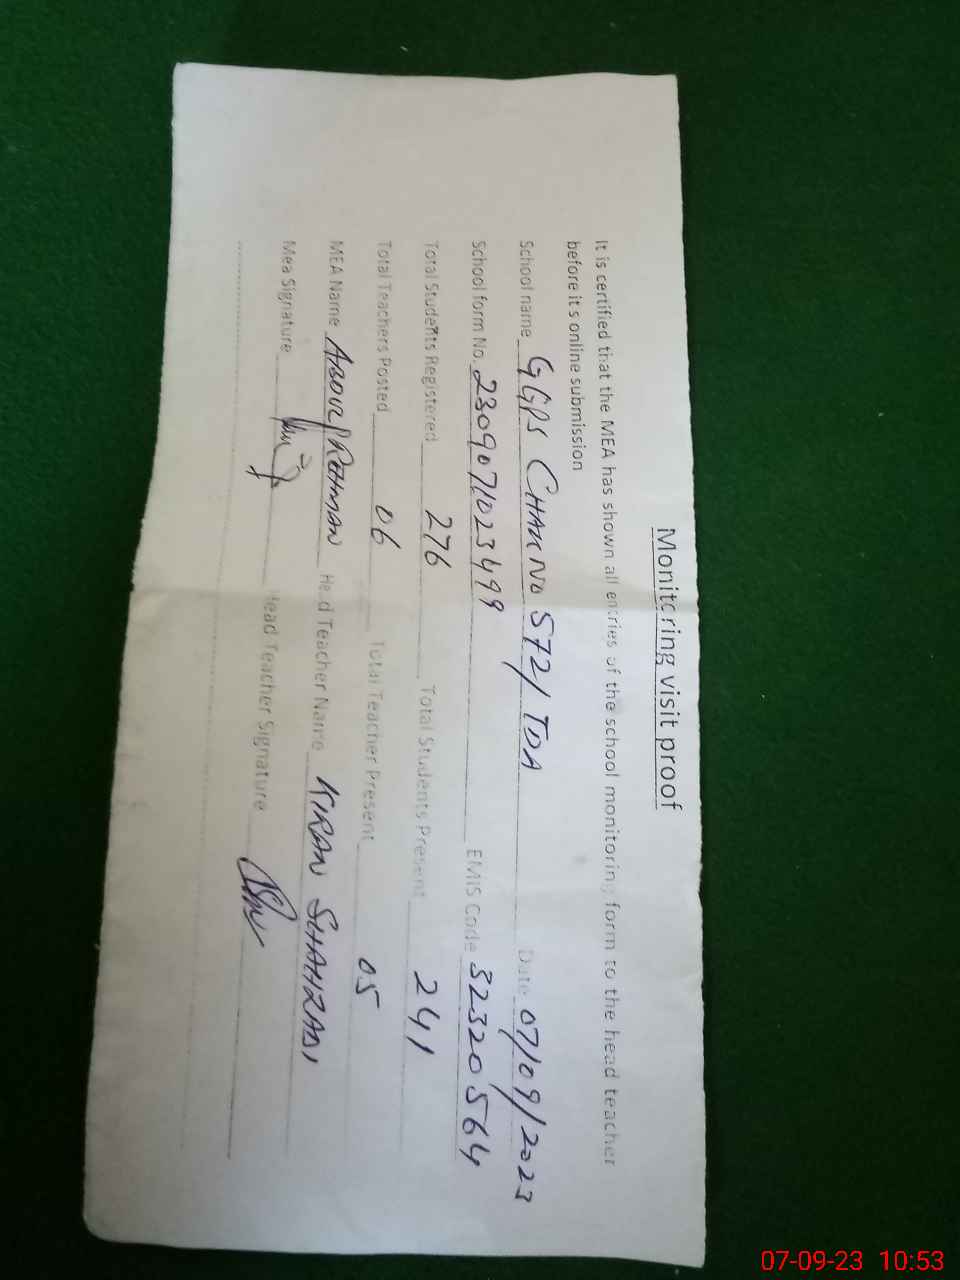 Monitoring visit proof
It is certified that the MEA has shown all entries of the school monitoring form to the head teacher
before it's online submission
School name GGPS CHAK NO 572/TDA Date 07/09/2023
School form No. 2309071023499 EMIS Code 32320564
Total Students Registered 276 Total Students Present 241
Total Teachers Posted 06 Total Teacher Present 05
MEA Name ABDUL REHMAN Head Teacher Name KIRAN SHAHZADI
Mea Signature Head Teacher Signature
07-09-23 10:53